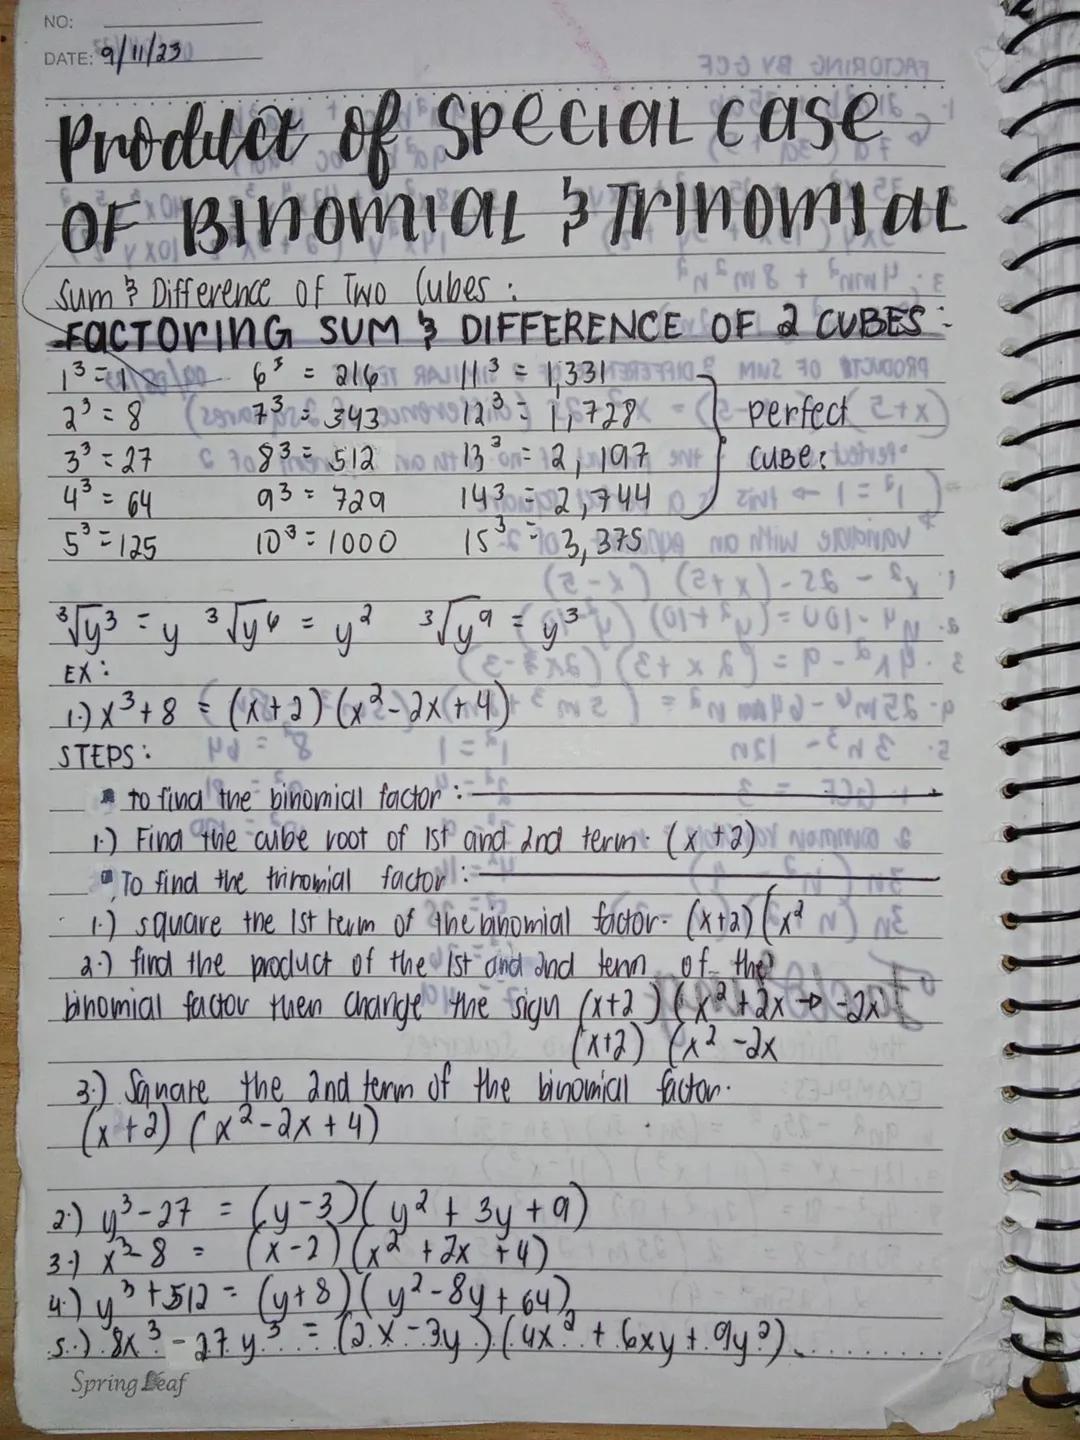 NO:
DATE: 9/11/23
Product of special case
OF BINOMIAL & TRINOMIAL
Sum & Difference of Two Cubes:
FACTORING SUM & DIFFERENCE OF 2 CUBES:
1³ = 1 6³ = 216 11³ = 1,331
2³ = 8 7³ = 343 12³ = 1,728 perfect
3³ = 27 8³ = 512 13³ = 2,197 cube:
4³ = 64 9³ = 729 14³ = 2,744
5³ = 125 10³ = 1000 15³ = 3,375
³√y³ = y ³√y⁶ = y² ³√y⁹ = y³
EX:
1.) x³ + 8 = (x+2) (x² - 2x + 4)
STEPS:
to find the binomial factor:
1.) Find the cube root of 1st and 2nd term. (x + 2)
To find the trinomial factor:
1.) square the 1st term of the binomial factor. (x+2) (x²
2.) find the product of the 1st and 2nd term of the
binomial factor then change the sign (x+2) (x² + 2x → -2x
(x+2) (x² - 2x
3.) Square the 2nd term of the binomial factor.
(x+2) (x² - 2x + 4)
2.) y³ - 27 = (y - 3) (y² + 3y + 9)
3.) x³ - 8 = (x - 2) (x² + 2x + 4)
4.) y³ + 512 = (y + 8) (y² - 8y + 64)
5.) 8x³ - 27y³ = (2x - 3y) (4x² + 6xy + 9y²)
Spring Leaf